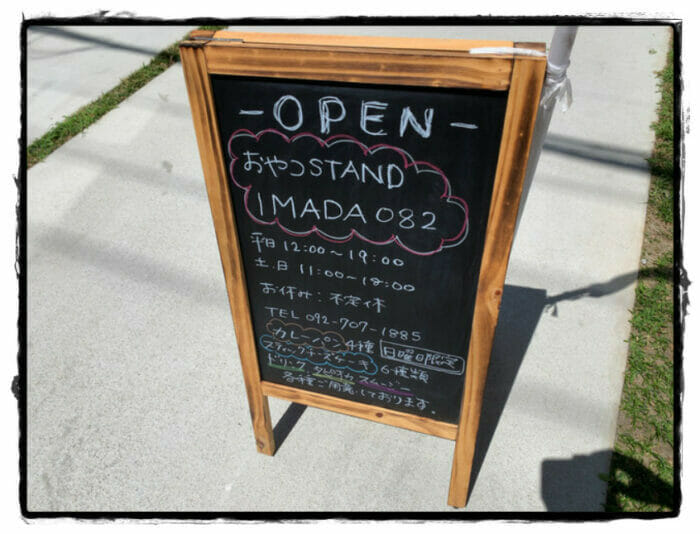 -OPEN-
おやつSTAND
IMADA 082
平日 12:00～19:00
土.日 11:00～18:00
お休み：不定休
TEL 092-707-1885
カレーパン 4種 日曜日限定
スティックチーズケーキ 6種類
ドリンク スムージー
各種ご用意しております。